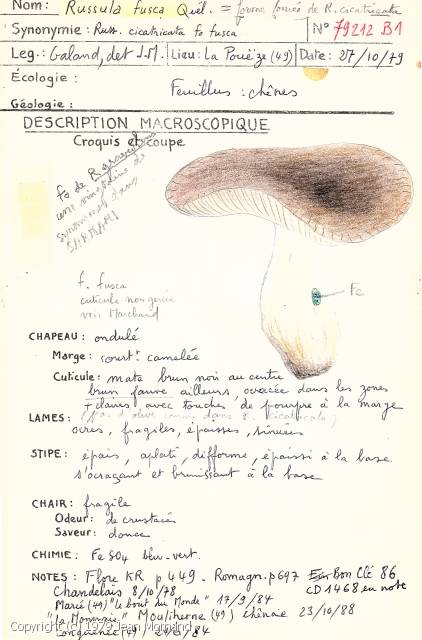 Nom: Russula fusca Quél. = forme foncée de R. cicatricata
Synonymie: Russ. cicatricata fo fusca
N° 79212 B1
Leg.: Galand, det J.M. Lieu: La Pouëze (49) Date: 27/10/79
Écologie: Feuillus: chênes
Géologie:
DESCRIPTION MACROSCOPIQUE
Croquis et coupe
fo de R.
synonymes dans
SARNARI
Fe
f. fusca
cuticule non gercée
voir Marchand
CHAPEAU: ondulé
Marge: court.t camelée
Cuticule: mate brun noir au centre
brun fauve ailleurs, ocracée dans les zones
+ claires, avec touches de pourpre à la marge
LAMES:
ocres, fragiles, épaisses, sinuées
STIPE: épais, aplati, difforme, épaissi à la base
s'ocraçant et brunissant à la base
CHAIR: fragile
Odeur: de crustacés
Saveur: douce
CHIMIE: FeSO4 bleu-vert.
NOTES: Flore KR p 449. Romagn. p697 Bon Clé 86
CD 1468 en note
Chandelais 8/10/78
Marcé (49) "le bout du Monde" 17/9/84
"la Monnaie" Mouliherne (49) chênaie 23/10/88
Longuenée (49)
Copyright (c) 1979 Jean Mornand